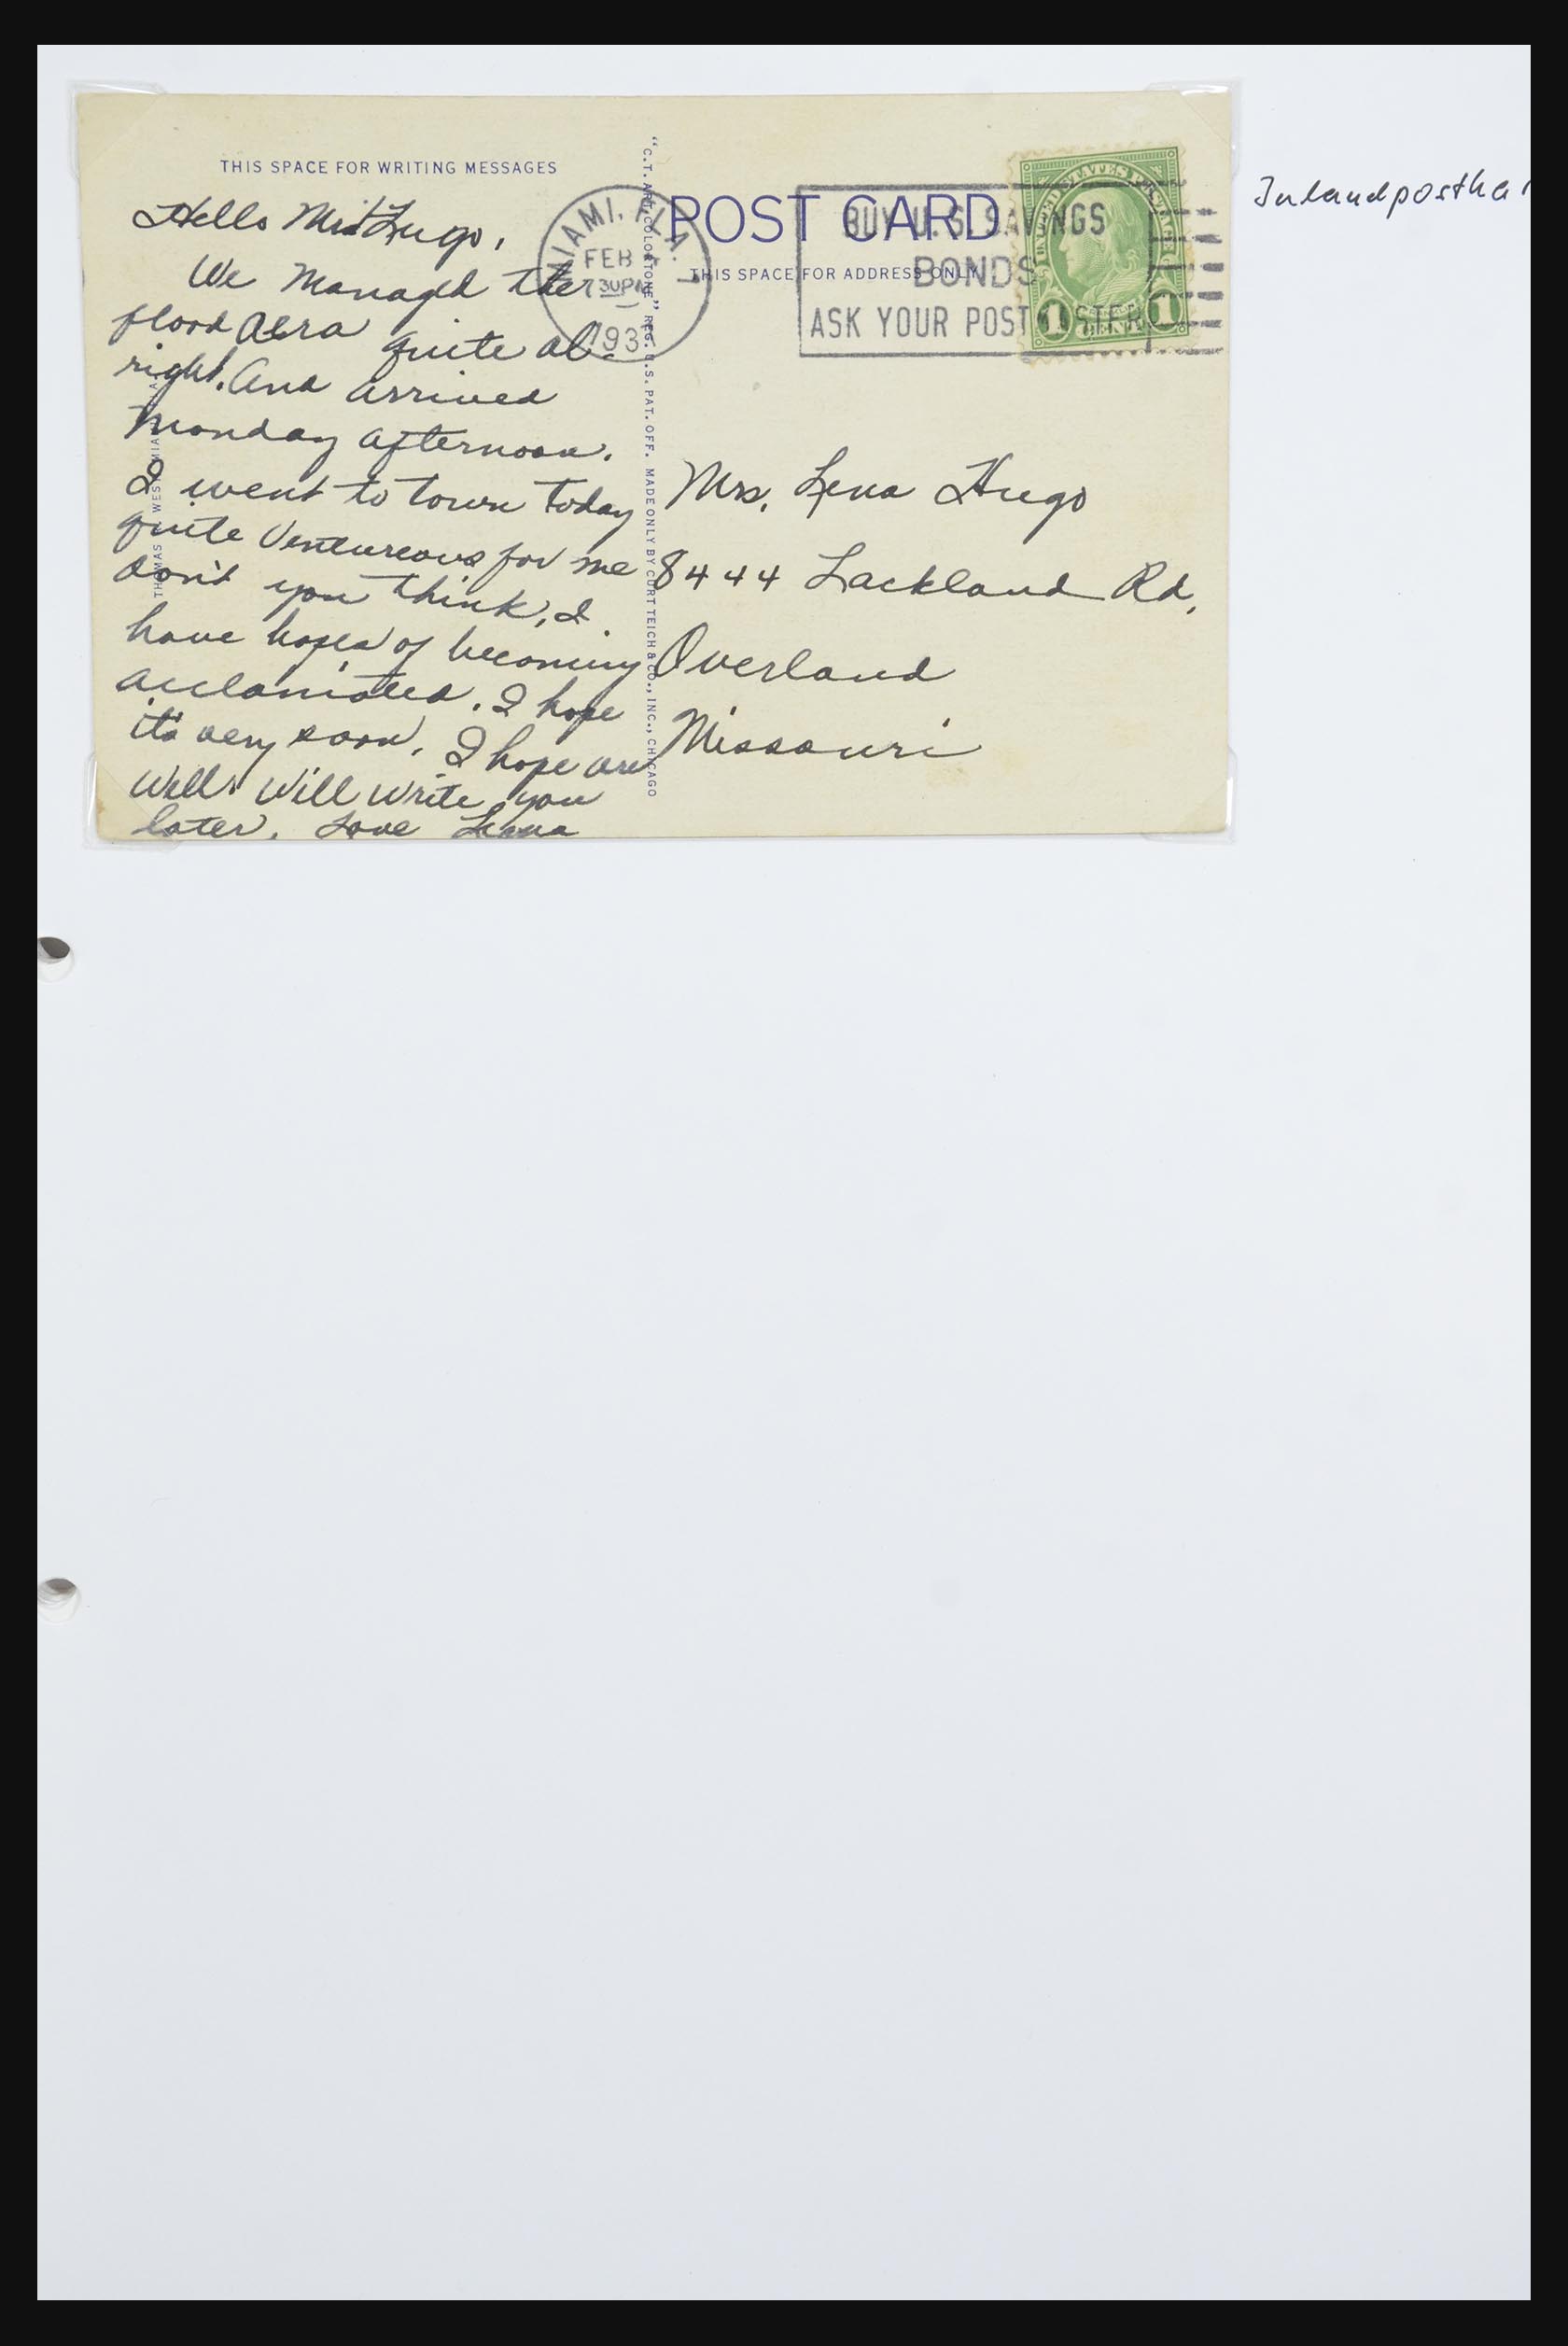 THIS SPACE FOR WRITING MESSAGES
Hello Mrs Hugo,
We Managed the
flood Aera quite al-
right. And arrived
Monday afternoon.
I went to town today
quite Ventureous for me
don't you think, I
have hopes of becoming
acclamated. I hope
it's very soon. I hope are
Well. Will write you
later. Love Leona
MIAMI, FLA.
FEB
730PM
193
"C.T. ART-COLORTONE" REG. U.S. PAT. OFF. MADE ONLY BY CURT TEICH & CO., INC., CHICAGO
POST CARD
THIS SPACE FOR ADDRESS ONLY
BUY U.S. SAVINGS
BONDS
ASK YOUR POSTMASTER
1 1
Mrs. Lena Hugo
8444 Lackland Rd.
Overland
Missouri